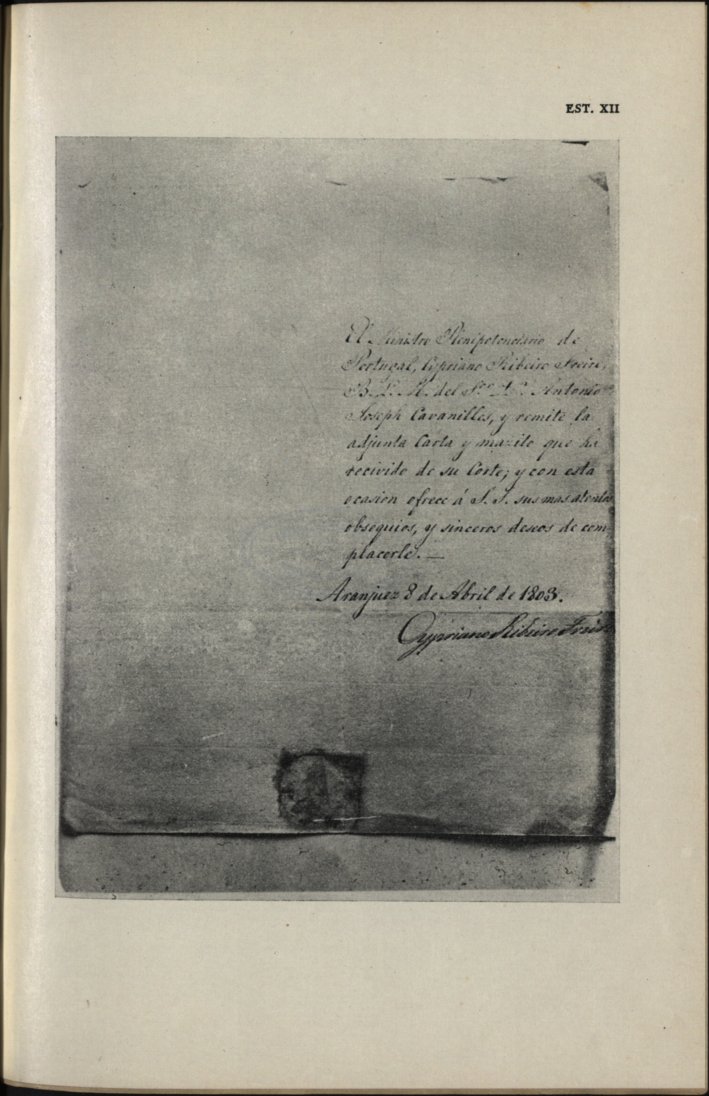 EST. XII
El Ministro Plenipotenciario de
Portugal, Cypriano Ribeiro Freire,
B. L. M. del S.or D.n Antonio
Joseph Cavanilles, y remite la
adjunta Carta y mazito que ha
recivido de su Corte; y con esta
ocasion ofrece á S. S. sus mas atentos
obsequios, y sinceros deseos de com-
placerle. —
Aranjuez 8 de Abril de 1803.
Cypriano Ribeiro Freire